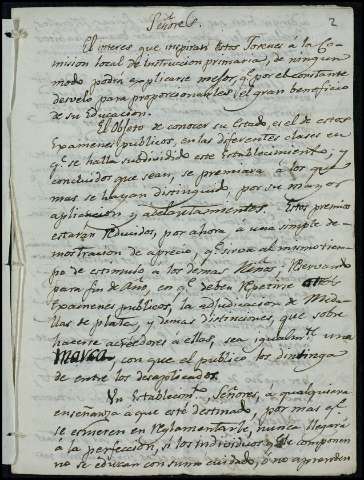 Señores. 2
El interes que inspiran estos Jovenes á la Co-
mision local de instruccion primaria, de ningun
modo podrá explicarse mejor, q.e por el constante
desvelo para proporcionarles el gran beneficio
de su Educacion.
El Objeto de conocer su Estado, es el de estos
Examenes publicos, en las diferentes clases en
q.e se halla subdividido este Establecimiento; y
concluidos que sean, se premiara á los que
mas se hayan distinguido, por su mayor
aplicacion y adelantamentos. Estos premios
estarán reducidos, por ahora á una simple de-
mostracion de aprecio, q.e sirva al mismo tiem-
po de estimulo á los demas Niños; reservando
para fin de Año, en q.e deben repetirse
Examenes publicos, la adjudicacion de Meda-
llas de plata, y demas distinciones, que sobre
hacerse acrehedores a ellas, sea igualm.te una
marca, con que el publico los distinga
de entre los desaplicados.
Un Establecim.to, Señores, á qualquiera
enseñanza a que esté destinado, por mas q.e
se esmeren en reglamentarle, nunca llegará
á la perfeccion, si los individuos que componen
no se educan con sumo cuidado, ó no aprenden